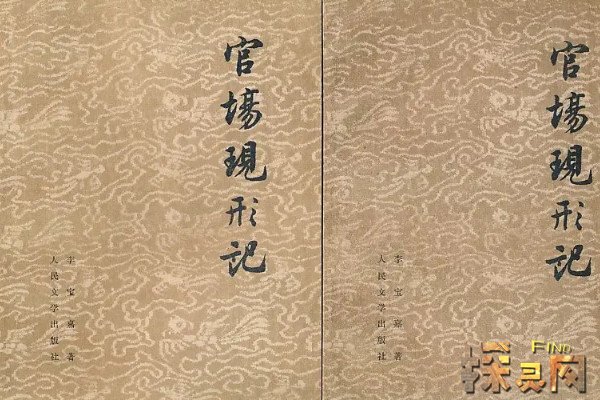 官場現形記
李宝嘉著
人民文学出版社
官場現形記
李宝嘉著
人民文学出版社
FIND
探灵网